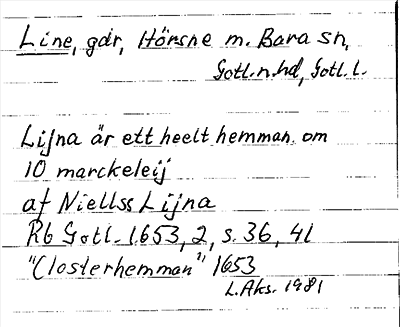 Line, gdr, Hörsne m. Bara sn,
Gotl. n. hd, Gotl. l.
Lijna är ett heelt hemman om
10 marckeleij
af Niellss Lijna
Rb Gotl. 1653, 2, s. 36, 41
"Closterhemman" 1653
L. Aks. 1981